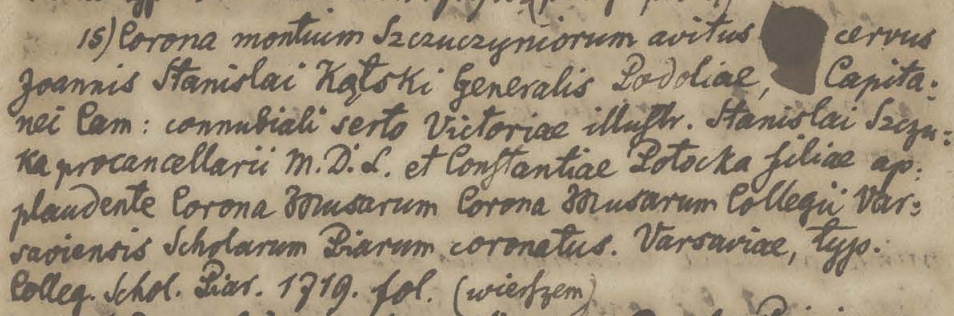 15) Corona montium Szczuczyniorum avitus cervus
Joannis Stanislai Kątski Generalis Podoliae, Capita:
nei Cam: connubiali serto Victoriae illustr. Stanislai Szczu:
ka procancellarii M. D. L. et Constantiae Potocka filiae ap:
plaudente Corona Musarum Corona Musarum Collegii Var:
saviensis Scholarum Piarum coronatus. Varsaviae, typ.
Colleg. Schol. Piar. 1719. fol. (wierszem)